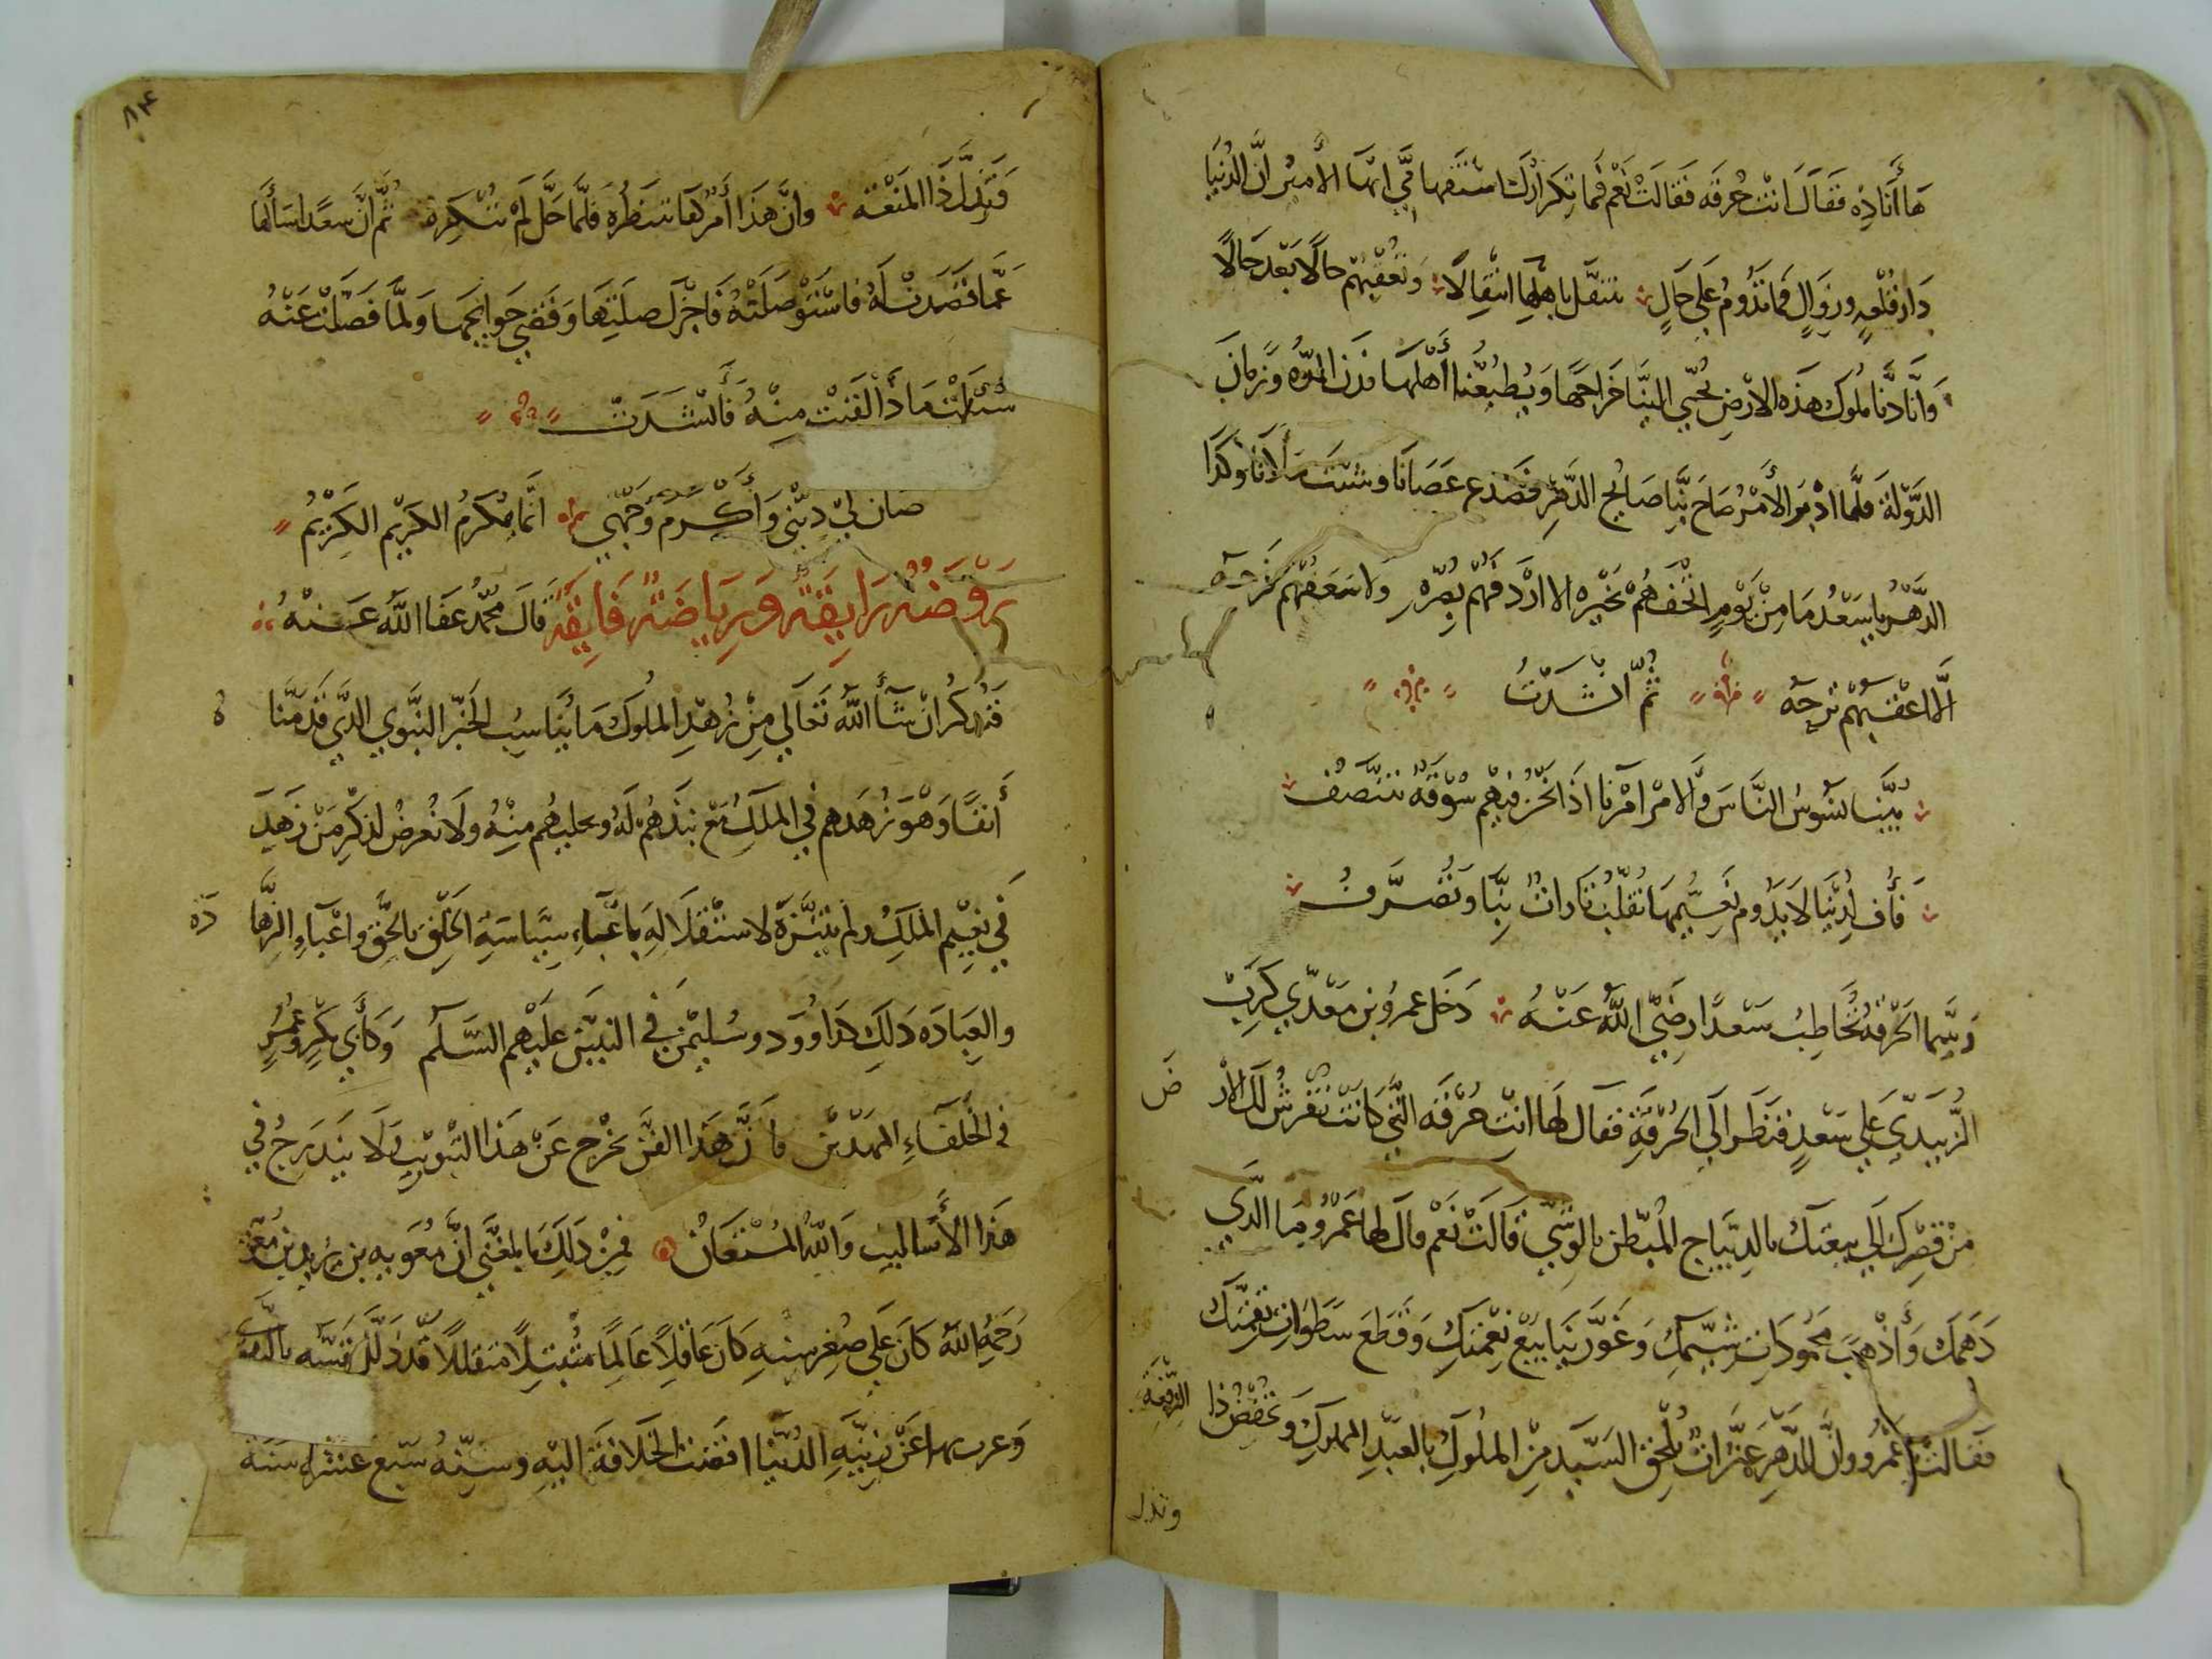 هَا أَنَاذِهْ فَقَالَ انْتِ حُرقَه فَقَالَتْ نَعَمْ فَمَا تِكرَارُكَ اسْتفهَامِي ايّهَا الأمِيْر انَّ الدُنيَا
دَار قُلْعَةٍ وزَوَالٍ فَمَا تَدُومُ عَلَي حَالٍ تنتقل باهلِهَا انتِقِالًا وَتُعْقِبُهُم حَالًا بَعْدَ حَالًا
وَانَّا كُنَّا مُلوك هَذِهِ الارْضِ يُجْبَي الينَا خَراجهَا وَيُطِيْعُنَا أَهْلهَا مُدن المدّه وَزمَان
الدَّوْلَة فَلمَّا ادْبَر الأَمْرُ صَاحَ بِنَّا صَايْحُ الدَّهْرِ فَصَدع عَصَانَا وشتت مَلَأنَا وَكَذَا
الدَّهْرُ يا سَعْدُ مَا مِنْ قَوْمٍ اتْحفَهُمْ بَخَيْره الا ارْدَفهُمْ بِعُرّهِ ولا اسعَفهُم بفَرحَه
الَّا اعْقبهُم تَرحَة ثُمّ انْشَدَتْ
بَيَّنا نسُوسُ النَّاسَ وَالامْر امْرنا اذَا نَحْن فيْهم سُوْقَةٌ نتنَصّفُ
فَأُف لِدُنيَا لَا يَدُوم نَعِيْمهَا تُقلّبُ تَارَات بِنَّا وَتُصَرَّفُ
وَبيّما الحُرْقَةُ تُخَاطِبُ سَعْدًا رَضِيَ اللَّهُ عَنْهُ دَخَل عمرُو بن مَعْدِي كَرِبْ
الزُّبيَدِيّ عَلي سَعْدٍ فنَظَر الَي الحُرْقَةِ فقال لهَا انتِ حُرْقَه التَّي كَانَتْ تفْرشُ لَك الارْض
مِنْ قصْرِك الَي بيعَتِك بالدِيّبَاج المُبَطّن بالوشْيّ قَالَتْ نَعَمْ قالَ لهَا عَمْرُو مَا الذَّي
دَهَمك وَأَذْهبَ مَحْمُودَات شِيَمِك وَغَوَّر يَنَابِيْعَ نِعْمَتِك وَقَطعَ سَطوَات نِقمتِك
فقَالتْ يا عَمْرُو وانَّ للدَّهرِ عَثَرَات تُلْحِق السَيّد مِنْ المُلوكِ بالعَبْدِ المملوكِ وَتخفِضُ ذا الرِّفعَة
وتذل
٨٤
وَتُذِلّ ذَا المَنْعَة وانَّ هَذَا أَمْرٌ كُنا ننتظرُهُ فَلمَّا حَلَّ لمْ نُنْكِرهُ ثُمَّ انَّ سعْدًا سَأَلهَا
عَمَّا قَصَدتْ لَهُ فاسْتَوْصَلَتْهُ فَاجْزَل صِلَتِهَا وَقَضي حَوائجهَا وَلمَّا فَصَلتْ عَنْهُ
سُئِلتْ مَاذَا لقيَتْ مِنْهُ فَأَنْشَدَتْ
صَانَ لِيْ ذِمَّتي وَأَكْرمَ وَجْهِي انَّمَا يُكرَمُ الكَرِيْم الكَرِيْمُ
رَوْضَةٌ رَايِقَةٌ وَرِيَاضَةٌ فَايِقَةٌ قَالَ مُحمّدٌ عَفَا اللَّهُ عَنْهُ
قَد نُذكُر انْ شَآءَ اللَّه تَعَالَي مِنْ زُهْدِ المُلوك مَا يُنَاسِبُ الخَبَر النبَّوي الذَّي قَدمنَا
أَنفًا وَهْوَ زُهْدهم فِي المُلكِ مَعْ نَبْذهِمْ لَهُ وتخليهِم مِنْهُ ولَا نُعرضُ لذِكْرِ مَنْ زَهِدَ
فِي نَعِيْمِ المُلكِ ولم يَنبِذهُ لاستقلَالِهِ باعْبَاءِ سِيَاسَةِ الخَلْقِ بالحَقِّ واعْبَاءِ الزَّهَادَه
والعِبَادَه ذلِكَ كدَاوُود وسُليْمٰن فِي النبِيّين عليْهِم السَّلَم وَكَأَبِي بَكْرٍ وَعُمَرٍ
فِي الخُلَفَاءِ المَهدّيْن فانَّ هَذَا الفَنَّ يخْرج عَنْ هَذَا التبْوِيْبِ وَلَا يَنْدَرِجُ فِي
هَذَا الأسَالِيبِ وَاللهُ المُسْتعَانُ فَمِنْ ذَلِكَ مَا بلغَنِي انَّ مُعَوِيه بن يزيْد بن مُعوِيَة
رَحمَهُ اللهُ كَانَ عَلي صُغِرِ سنهِ كَانَ عَاقلًا عَالِمًا مُتْبتلًا متقللًا قَدْ ذَلَّلَ نفسَهُ
وَعرب بهَا عَنْ زِيْنةِ الدُنْيَا افضَت الخِلَافَة اليْهِ وسِنّهُ سَبْع عَشْرة سَنَة